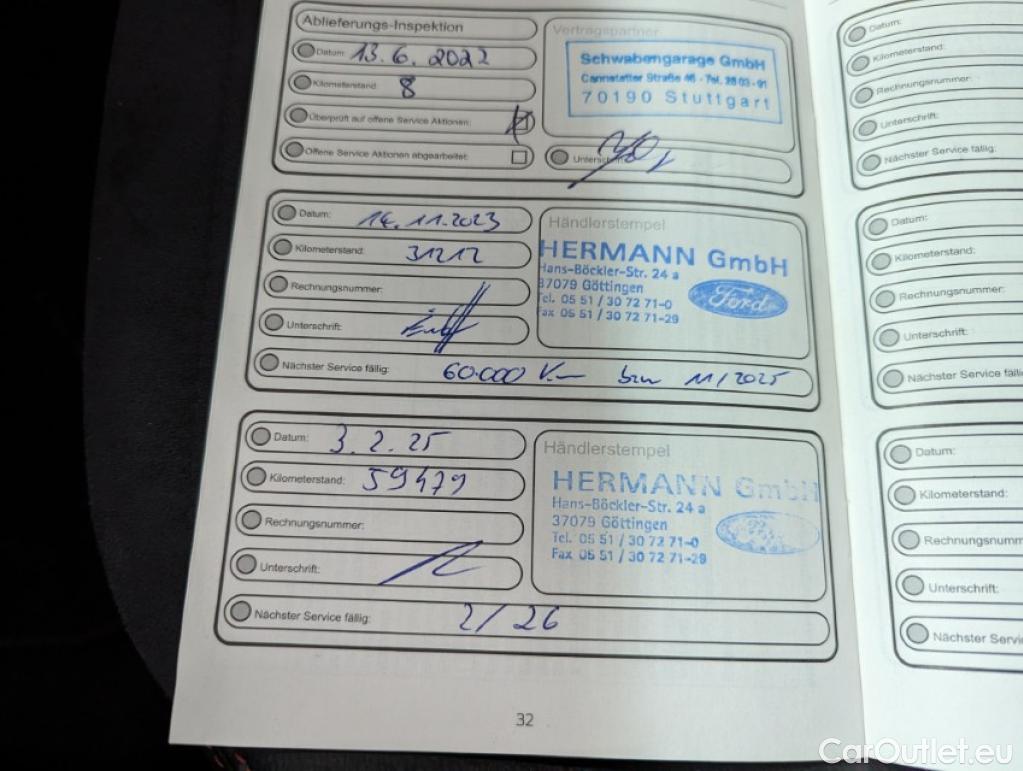 Ablieferungs-Inspektion
Datum: 13.6.2022
Kilometerstand: 8
Überprüft auf offene Service Aktionen:
Offene Service Aktionen abgearbeitet:
Vertragspartner
Schwabengarage GmbH
Cannstatter Straße 46 - Tel. 28 03-91
70190 Stuttgart
Datum: 14.11.2023
Kilometerstand: 31212
Rechnungsnummer:
Unterschrift:
Händlerstempel
HERMANN GmbH
Hans-Böckler-Str. 24 a
37079 Göttingen
Tel. 05 51 / 30 72 71-0
Fax 05 51 / 30 72 71-29
Ford
Nächster Service fällig: 60.000 Km bzw 11/2025
Datum: 3.2.25
Kilometerstand: 59479
Rechnungsnummer:
Unterschrift:
Händlerstempel
HERMANN GmbH
Hans-Böckler-Str. 24 a
37079 Göttingen
Tel. 05 51 / 30 72 71-0
Fax 05 51 / 30 72 71-29
Nächster Service fällig: 2/26
32
Datum:
Kilometerstand:
Rechnungsnummer:
Unterschrift:
Nächster Service fällig:
Datum:
Kilometerstand:
Rechnungsnummer:
Unterschrift:
Nächster Service fälli
Datum:
Kilometerstand:
Rechnungsnumm
Unterschrift:
Nächster Servi
CarOutlet.eu